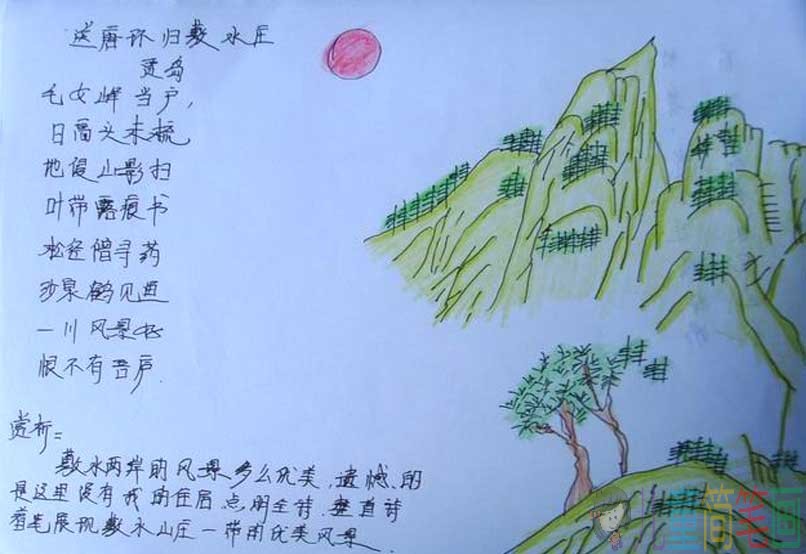 送唐环归敷水庄
贾岛
毛女峰当户，
日高头未梳
地侵山影扫
叶带露痕书
松径僧寻药
沙泉鹤见鱼
一川风景好
恨不有吾庐
赏析：
敷水两岸的风景多么优美，遗憾的
是这里没有我的住居点明全诗，整首诗
着笔展现敷水山庄一带的优美风景
童简笔画